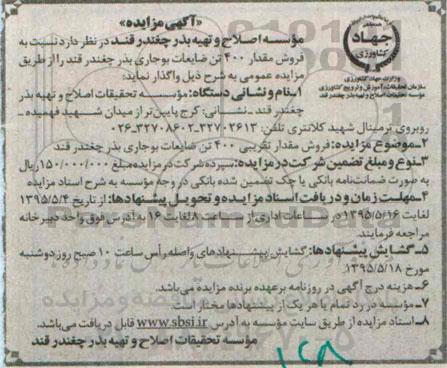 «آگهی مزایده»
مؤسسه اصلاح و تهیه بذر چغندر قند در نظر دارد نسبت به
فروش مقدار ۴۰۰ تن ضایعات بوجاری بذر چغندر قند را از طریق
مزایده عمومی به شرح ذیل واگذار نماید:
جهاد
کشاورزی
وزارت جهاد کشاورزی
سازمان تحقیقات، آموزش و ترویج کشاورزی
مؤسسه تحقیقات اصلاح و تهیه بذر چغندر قند
۱ـ نام و نشانی دستگاه: مؤسسه تحقیقات اصلاح و تهیه بذر
چغندر قند ـ نشانی: کرج پایین‌تر از میدان شهید فهمیده ـ
روبروی ترمینال شهید کلانتری تلفن: ۳۲۷۰۲۶۱۳ـ ۳۲۷۰۸۶۰۲ـ۰۲۶
۲ـ موضوع مزایده: فروش مقدار تقریبی ۴۰۰ تن ضایعات بوجاری بذر چغندر قند
۳ـ نوع و مبلغ تضمین شرکت در مزایده: سپرده شرکت در مزایده مبلغ ۱۵۰/۰۰۰/۰۰۰ ریال
به صورت ضمانت‌نامه بانکی یا چک تضمین شده بانکی در وجه مؤسسه به شرح اسناد مزایده
۴ـ مهلت زمان و دریافت اسناد مزایده و تحویل پیشنهادها: از تاریخ ۱۳۹۵/۵/۴
لغایت ۱۳۹۵/۵/۱۶ در ساعات اداری از ساعت ۸ لغایت ۱۶ به آدرس فوق واحد دبیرخانه
مراجعه فرمایند.
۵ـ گشایش پیشنهادها: گشایش پیشنهادهای واصله رأس ساعت ۱۰ صبح روز دوشنبه
مورخ ۱۳۹۵/۵/۱۸.
۶ـ هزینه درج آگهی در روزنامه برعهده برنده مزایده می‌باشد.
۷ـ مؤسسه در رد تمام یا هر یک از پیشنهادها مختار است.
۸ـ اسناد مزایده از طریق سایت مؤسسه به آدرس www.sbsi.ir قابل دریافت می‌باشد.
مؤسسه تحقیقات اصلاح و تهیه بذر چغندر قند